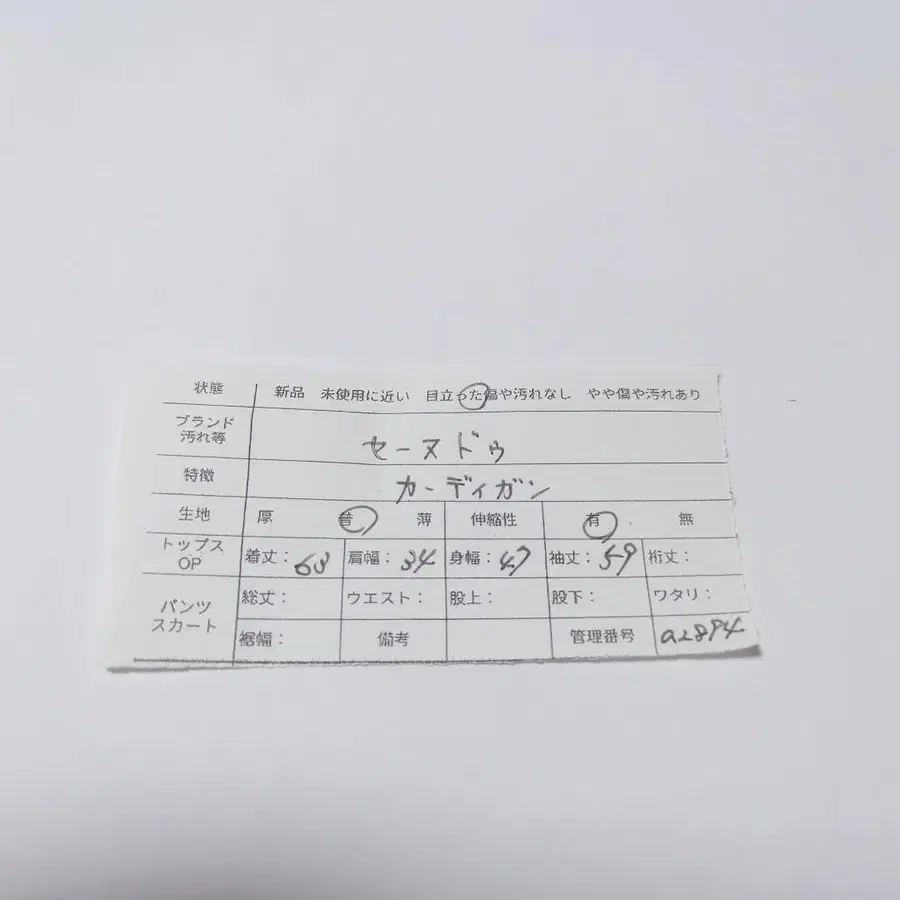 状態 新品 未使用に近い 目立った傷や汚れなし やや傷や汚れあり
ブランド
汚れ等 セーヌドゥ
特徴 カーディガン
生地 厚 普 薄 伸縮性 有 . 無
トップス
OP 着丈: 63 肩幅: 34 身幅: 47 袖丈: 59 裄丈:
パンツ
スカート 総丈: ウエスト: 股上: 股下: ワタリ:
裾幅: 備考 管理番号 a2894